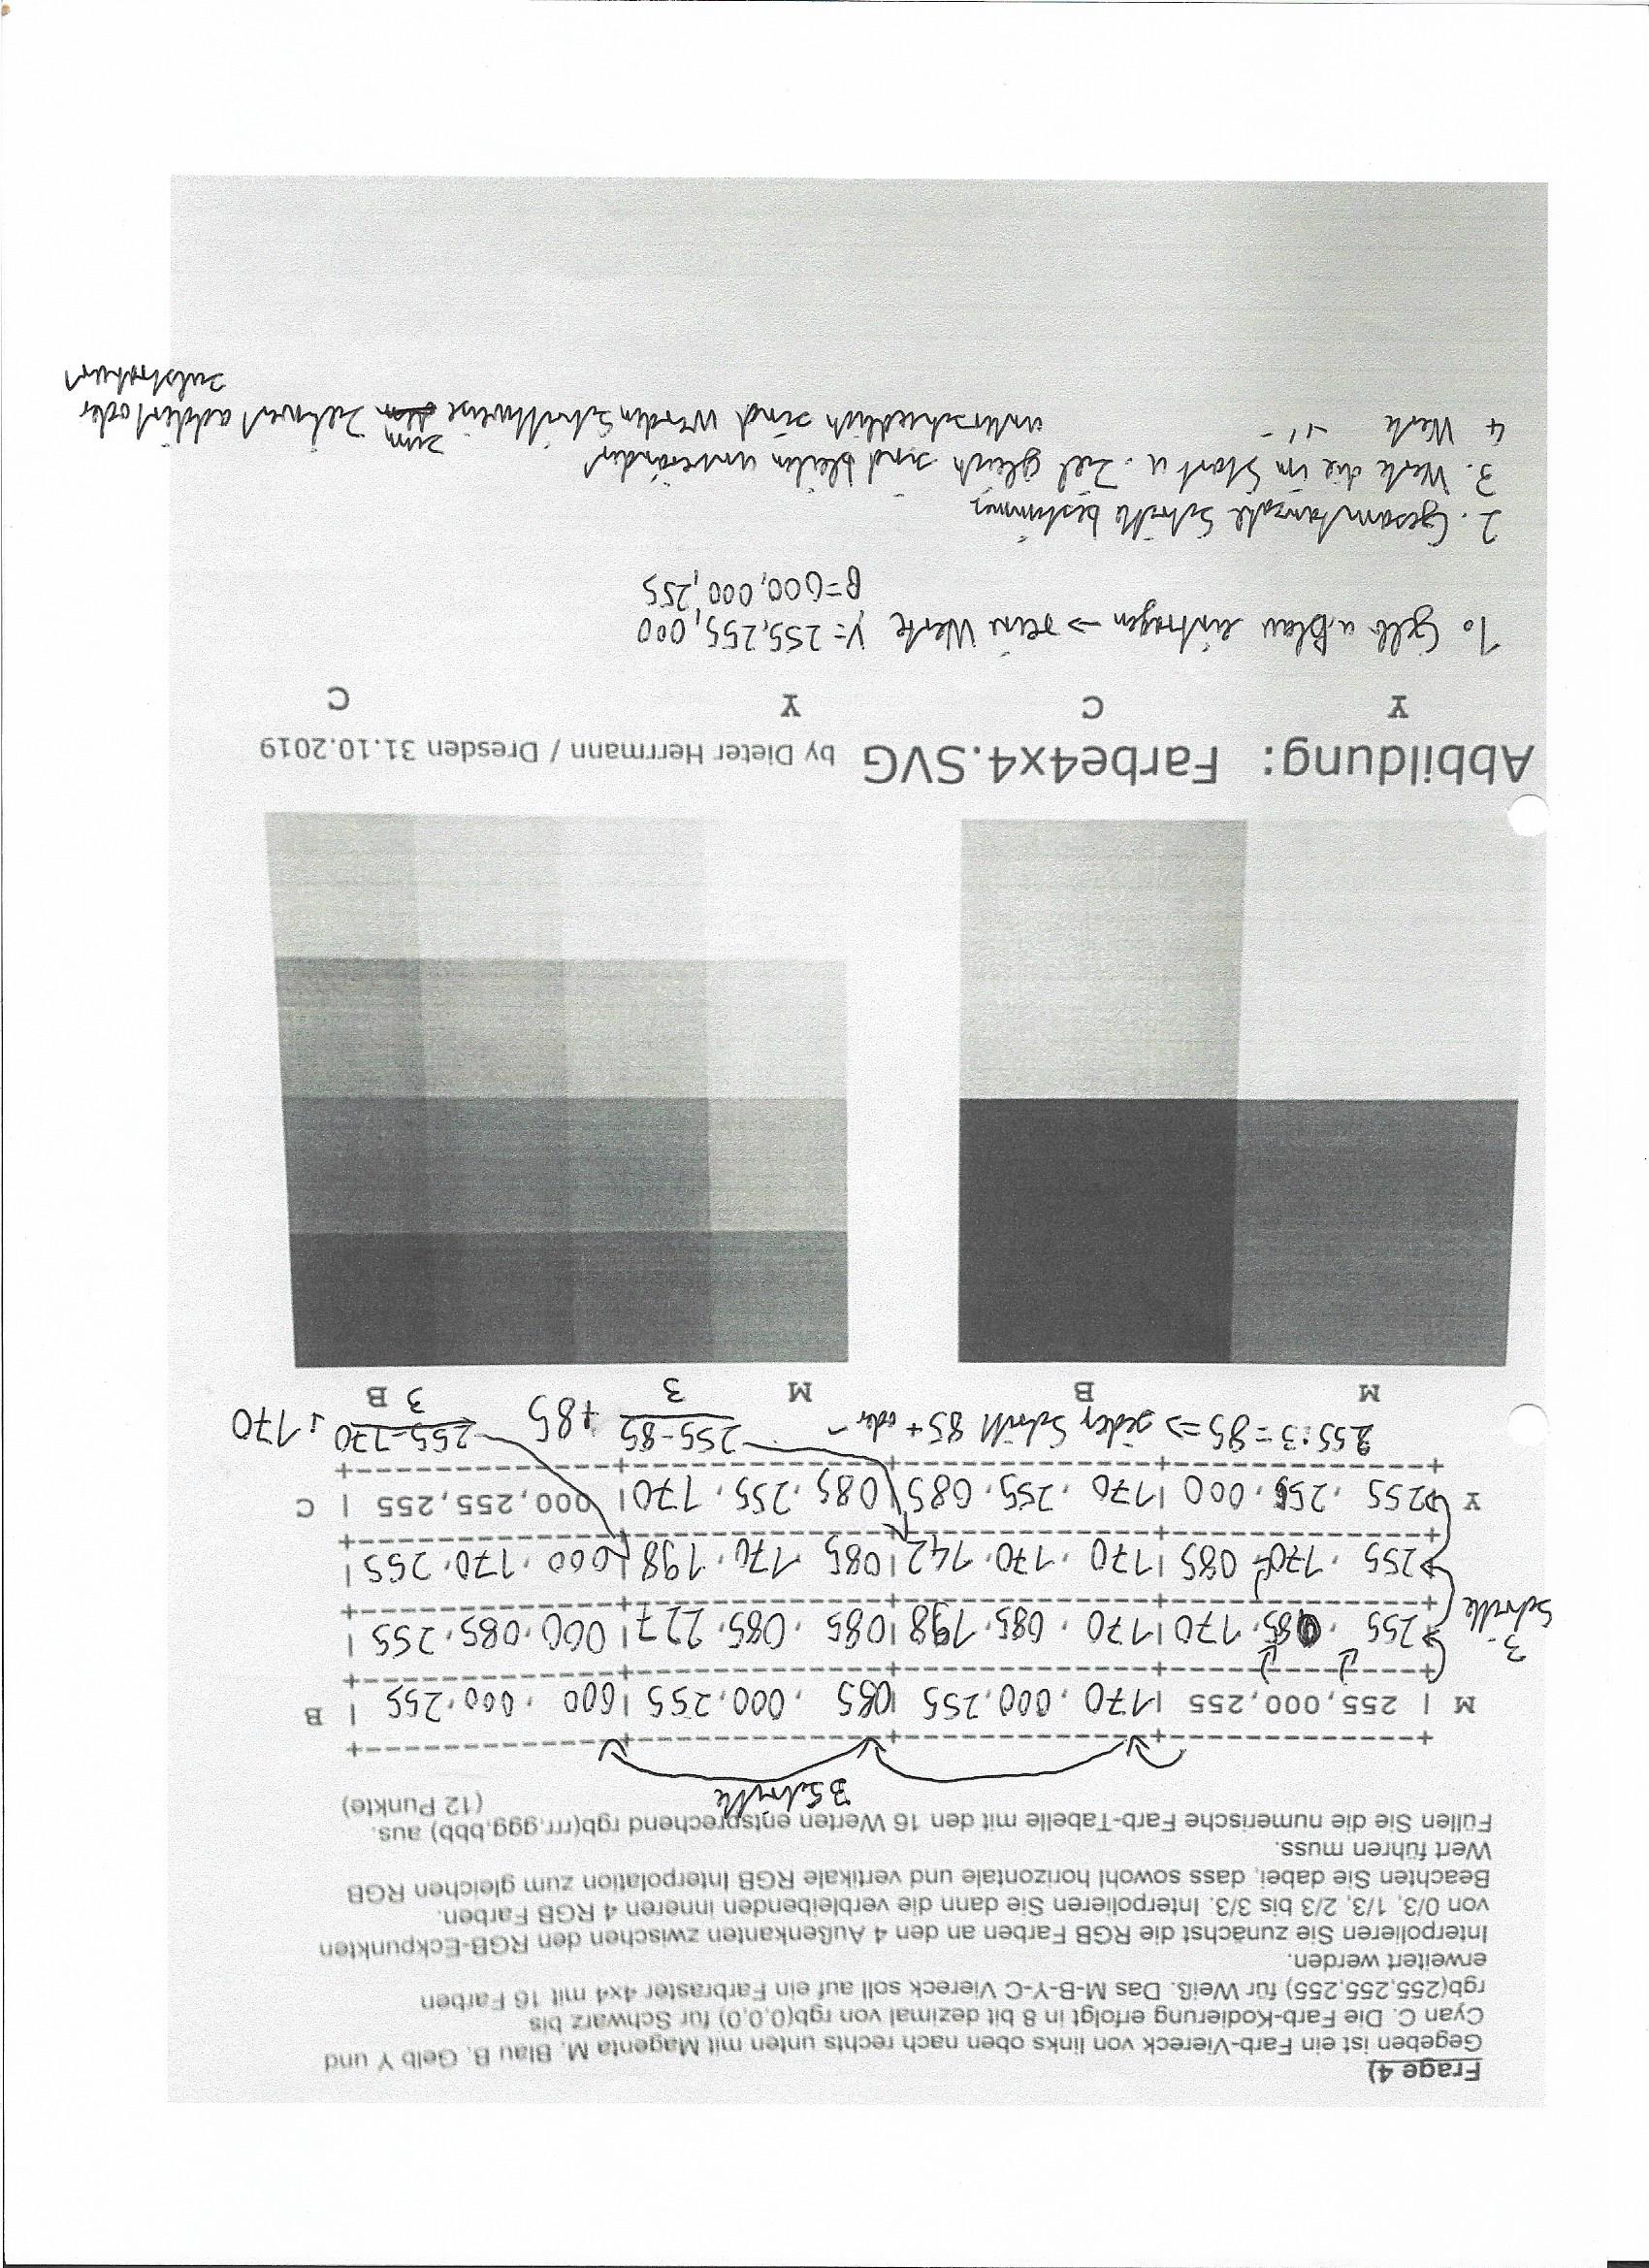 Frage 4)
Gegeben ist ein Farb-Viereck von links oben nach rechts unten mit Magenta M, Blau B, Gelb Y und
Cyan C. Die Farb-Kodierung erfolgt in 8 bit dezimal von rgb(0,0,0) für Schwarz bis
rgb(255,255,255) für Weiß. Das M-B-Y-C Viereck soll auf ein Farbraster 4x4 mit 16 Farben
erweitert werden.
Interpolieren Sie zunächst die RGB Farben an den 4 Außenkanten zwischen den RGB-Eckpunkten
von 0/3, 1/3, 2/3 bis 3/3. Interpolieren Sie dann die verbleibenden inneren 4 RGB Farben.
Beachten Sie dabei, dass sowohl horizontale und vertikale RGB Interpolation zum gleichen RGB
Wert führen muss.
Füllen Sie die numerische Farb-Tabelle mit den 16 Werten entsprechend rgb(rrr,ggg,bbb) aus.
(12 Punkte)
3 Schritte
M | 255,000,255 | 170,000,255 | 085,000,255 | 000,000,255 | B
3 Schritte
255,085,170 | 170,085,198 | 085,085,227 | 000,085,255 |
255,170,085 | 170,170,142 | 085,170,198 | 000,170,255 |
Y 255,255,000 | 170,255,085 | 085,255,170 | 000,255,255 | C
255:3=85 => jeder Schritt 85 + oder -
255-85 / 3 +85
255-170 / 3 +170
M B M B
Abbildung: Farbe4x4.SVG by Dieter Herrmann / Dresden 31.10.2019
Y C Y C
1. Gelb u. Blau eintragen -> reine Werte Y= 255,255,000
B=000,000,255
2. Gesamtanzahl Schritte bestimmen
3. Werte die im Start u. Ziel gleich sind bleiben unverändert
4 Werte -"- unterschiedlich sind werden Schrittweise zum Zielwert addiert oder
subtrahiert